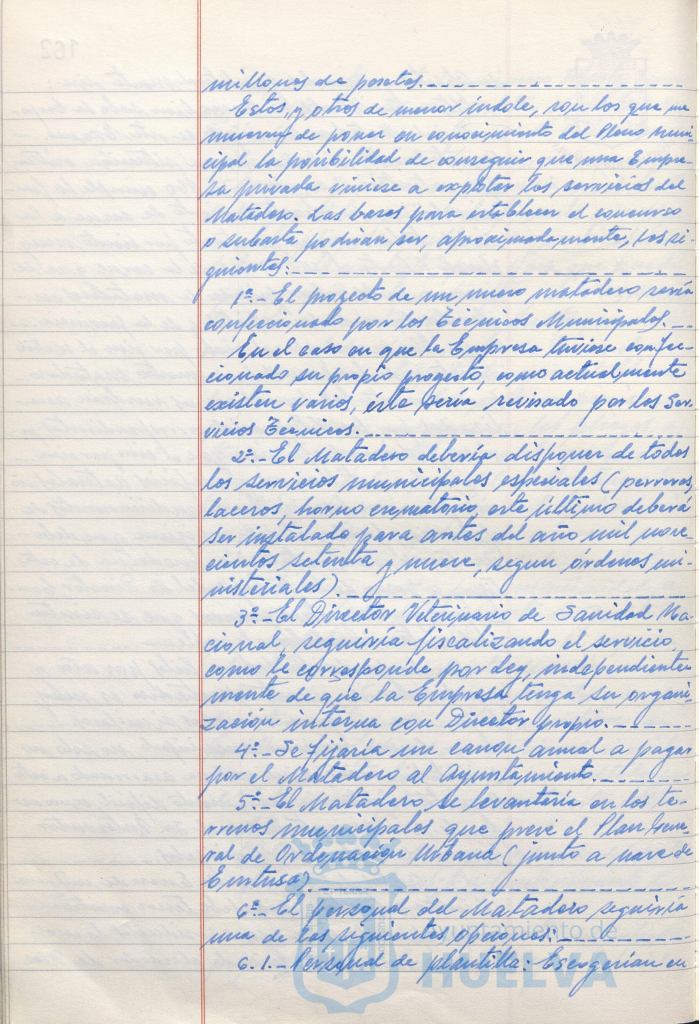 millones de pesetas.
Estos, y otros de menor índole, son los que me
mueven de poner en conocimiento del Pleno Muni-
cipal la posibilidad de conseguir que una Empre-
sa privada viniese a explotar los servicios del
Matadero. Las bases para establecer el concurso
o subasta podrían ser, aproximadamente, las si-
guientes:
1ª.- El proyecto de un nuevo matadero sería
confeccionado por los Técnicos Municipales.
En el caso en que la Empresa tuviese confec-
cionado su propio proyecto, como actualmente
existen varios, éste sería revisado por los Ser-
vicios Técnicos.
2ª.- El Matadero debería disponer de todos
los servicios municipales especiales (perreras,
laceros, horno crematorio, este último deberá
ser instalado para antes del año mil nove-
cientos setenta y nueve, segun órdenes mi-
nisteriales).
3ª.- El Director Veterinario de Sanidad Na-
cional, seguiría fiscalizando el servicio
como le corresponde por Ley, independiente-
mente de que la Empresa tenga su organi-
zación interna con Director propio.
4ª.- Se fijaría un canon anual a pagar
por el Matadero al Ayuntamiento.
5ª.- El Matadero se levantaría en los te-
rrenos municipales que prevé el Plan Gene-
ral de Ordenación Urbana (junto a nave de
Emtusa).
6ª.- El personal del Matadero seguiría
una de las siguientes opciones:
6.1.- Personal de plantilla: Escogerían en
Ayuntamiento de
HUELVA